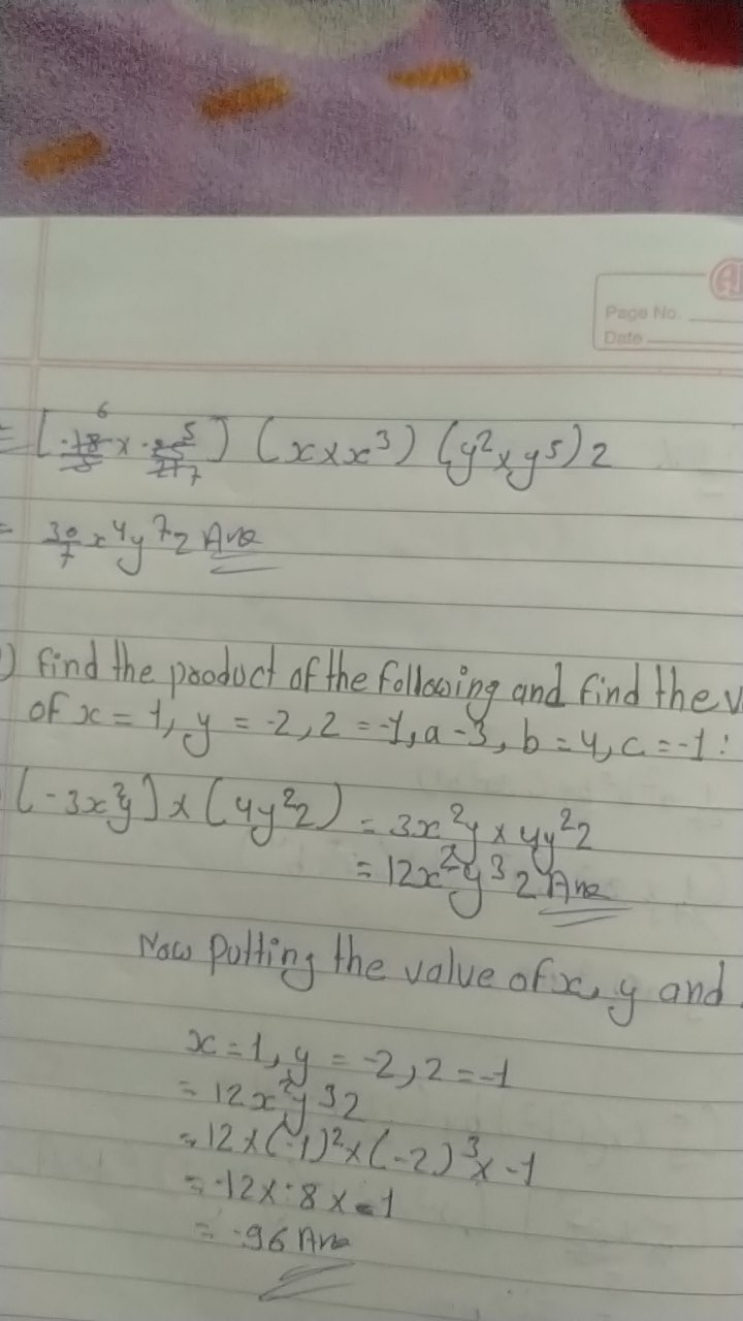 Page No.
Date
= [-18/5 × -25/21] (x × x³) (y² × y⁵) z
= 30/7 x⁴y⁷z Ans
) find the product of the following and find the v
of x = 1, y = -2, z = -1, a - 3, b = 4, c = -1 :
[-3x²y] × (4y²z) = 3x²y × 4y²z
= 12x²y³z Ans
Now putting the value of x, y and
x = 1, y = -2, z = -1
= 12x²y³z
= 12 × (-1)² × (-2)³ × -1
= -12 × -8 × -1
= -96 Ans